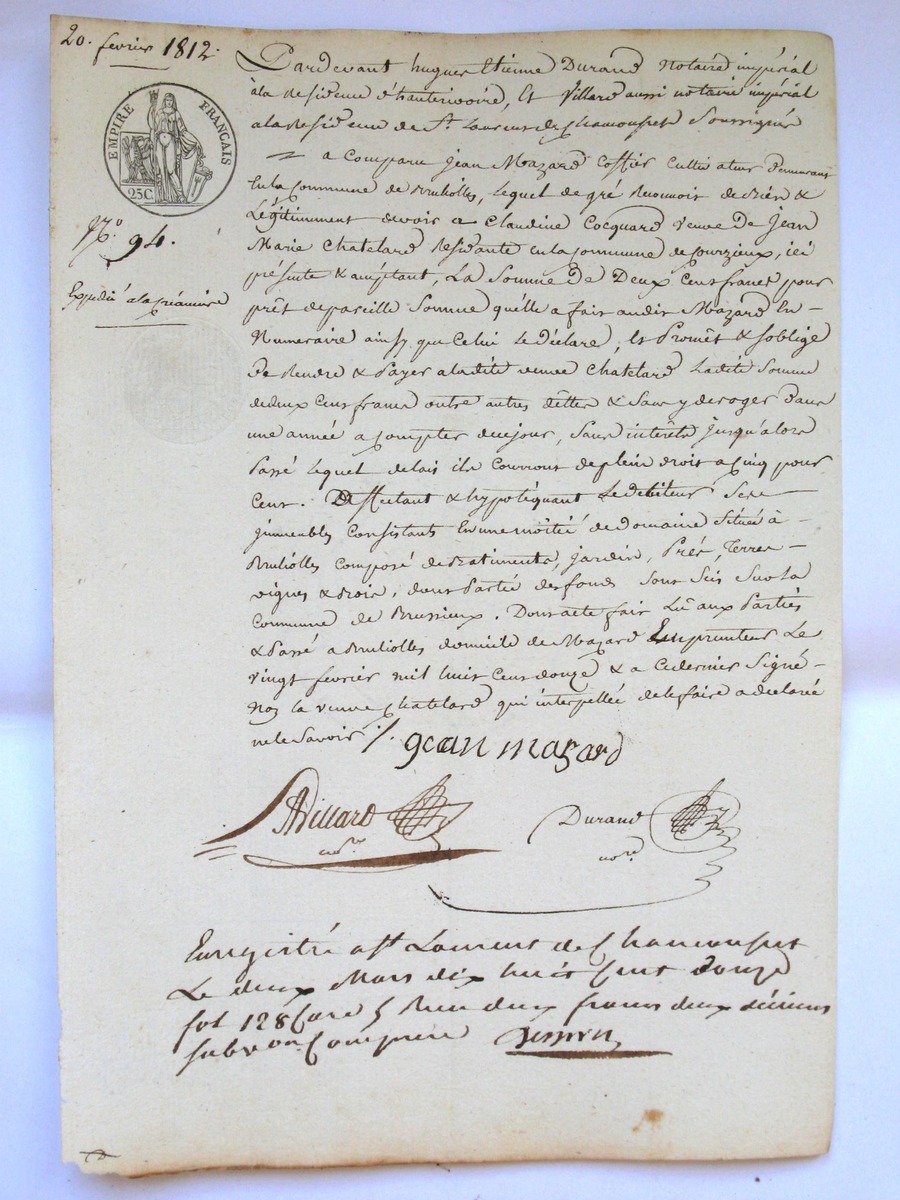 20. fevrier 1812.
EMPIRE FRANÇAIS
25C.
N.o 94.
Expedié a la créancière
Pardevant hugues Etienne Durand Notaire impérial
à la residence d'hauterivoire, Et Villard aussi notaire impérial
a la Residence de St. Laurent de Chamousset Soussignés
a comparu Jean Mazard Coffier Cultivateur Demeurant
En la Commune de Brullioles, lequel de gré Reconnoit devoir &
Légitimement devoir a Claudine Cocquard Veuve De Jean
Marie Chatelard Residante en la commune de Courzieux, ici
présente & acceptant, La Somme De Deux Cent francs pour
prêt de pareille Somme qu'elle a fait audit Mazard En
Numeraire ainsy que Celui Le Déclare, Et Promêt & Soblige
De Rendre & Payer a ladite veuve Chatelard Ladite Somme
de deux Cent francs outre autres dêttes & Sans y deroger Dans
une année a compter de ce jour, Sans interêts Jusqu'alors
Passé lequel delais ils Courront de plein droit a Cinq pour
Cent. Affectant & hypotéquant Le debiteur Ses
immeubles Consistants En une moitié de Domaine Située à
Brullolles Composé de Batiments, Jardin, Prés, Terres
vignes & Bois, dont Partie des fonds Sont Sis Sur la
Commune de Brussieux. Dont acte fait Lû aux Parties
& Passé a Brullolles domicile de Mazard Emprunteur Le
vingt fevrier mil huit Cent douze & a Ce dernier Signé
Non la veuve Chatelard qui interpellée de le faire a declaré
ne le Savoir /.
jean mazard
Villard
Durand
no.re
no.re
Enregistré a St Laurent de Chamousset
Le deux Mars dix huit Cent douze
fol 128 Case 5 Reçu deux francs deux décimes
Subv.on Comprise